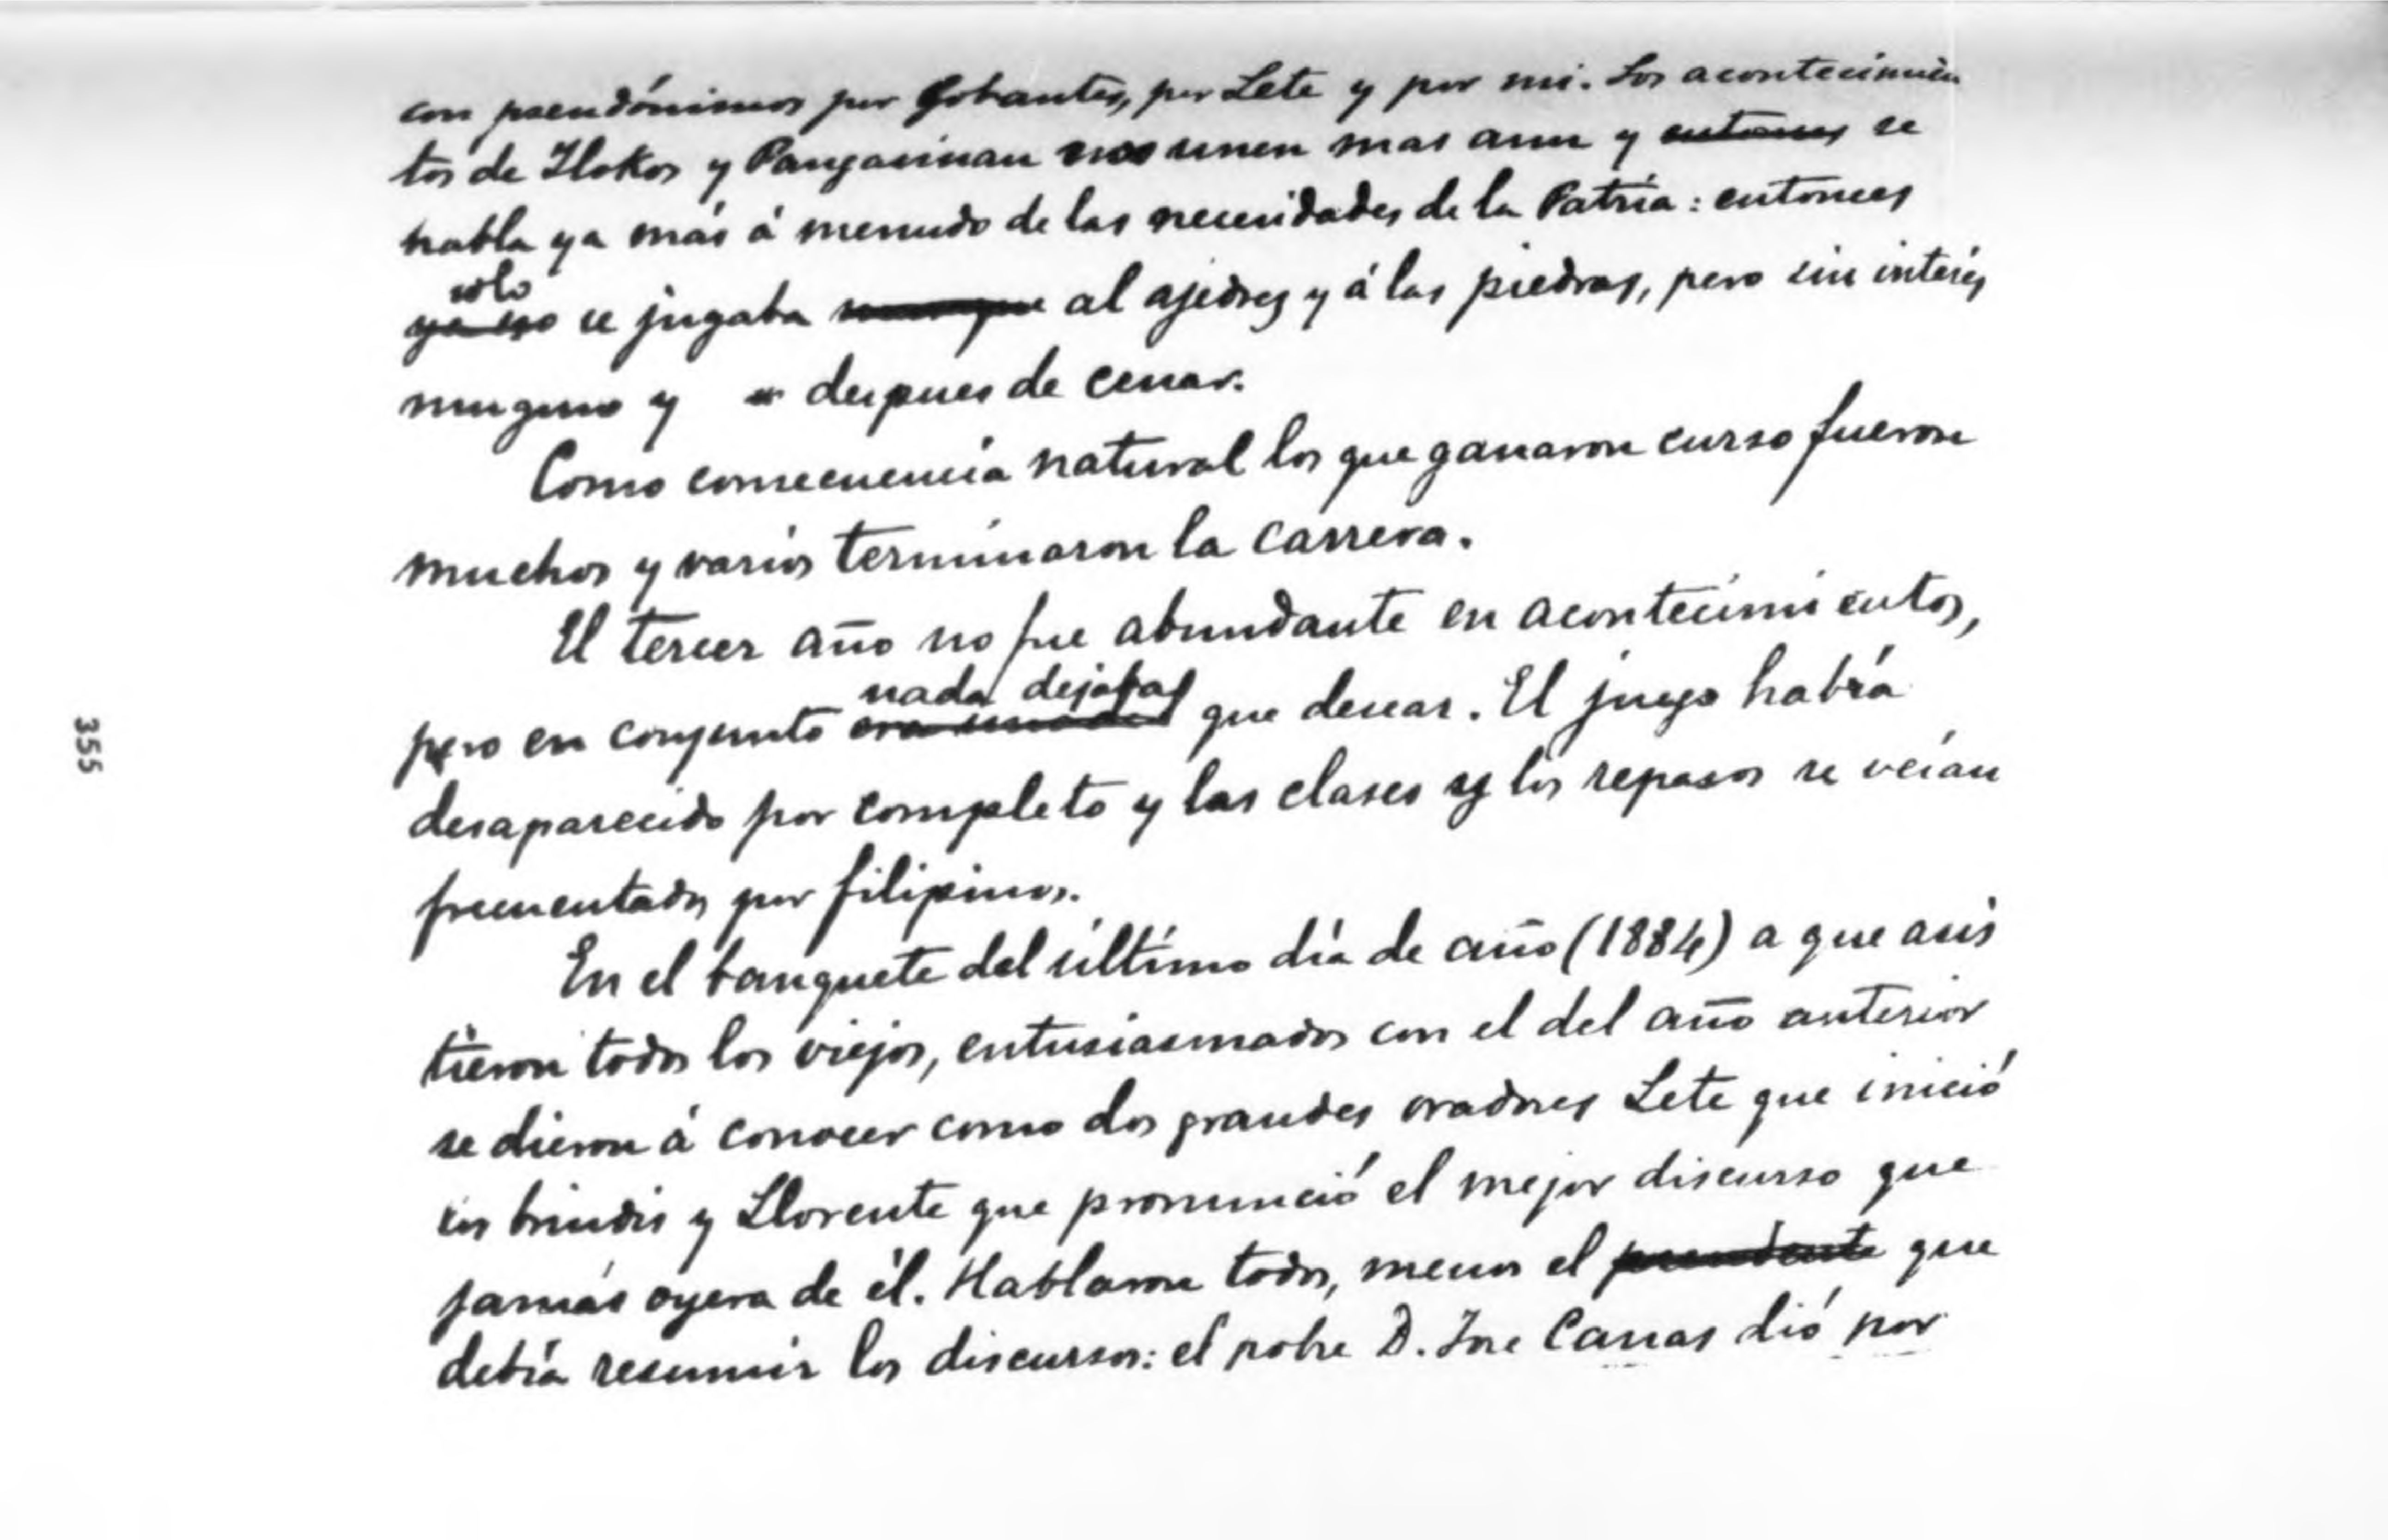 con pseudónimos por Gobantes, por Lete y por mi. Los acontecimien
tos de Ilokos y Pangasinan nos unen mas aun y entonces se
habla ya más á menudo de las necesidades de la Patria: entonces
solo
ya no se jugaba al ajedrez y á las piedras, pero sin interés
ninguno y despues de cenar.
Como consecuencia natural los que ganaron curso fueron
muchos y varios terminaron la carrera.
El tercer año no fue abundante en acontecimientos,
nada dejaba
pero en conjunto que desear. El juego había
desaparecido por completo y las clases y los repasos se veían
frecuentados por filipinos.
355
En el banquete del último día de año (1884) a que asis
tieron todos los viejos, entusiasmados con el del año anterior
se dieron á conocer como dos grandes oradores Lete que inició
los brindis y Llorente que pronunció el mejor discurso que
jamás oyera de él. Hablaron todos, menos el que
debía resumir los discursos: el pobre D. Jose Cañas dió por